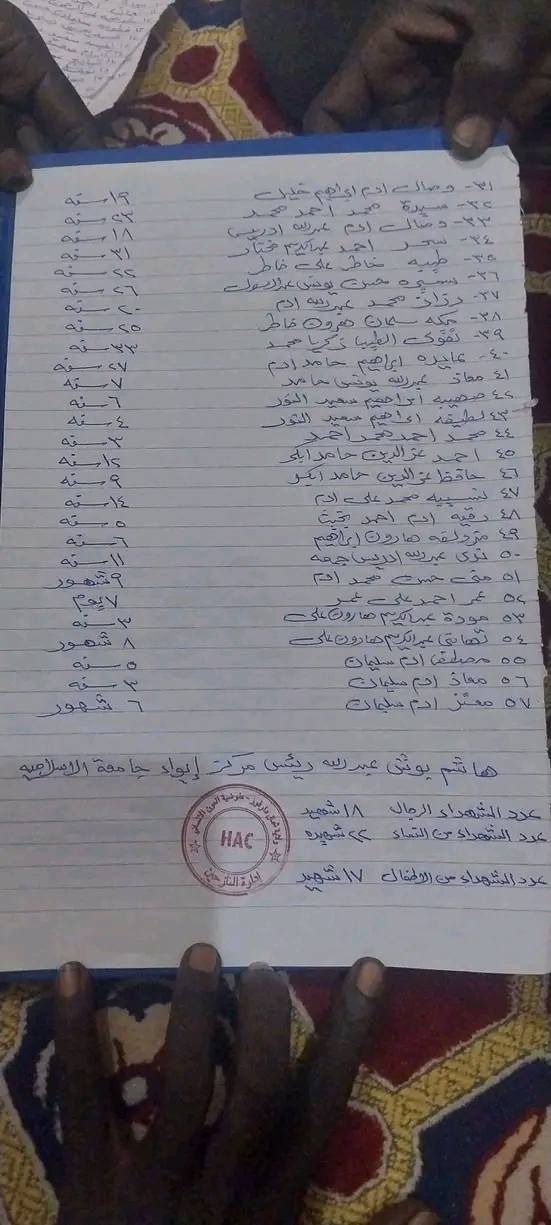 ٣١- وصال ادم ابراهيم خليل ١٩ سنه
٣٢- سيدة محمد احمد محمد ٢٣ سنه
٣٣- وصال ادم عبدالله ادريس ١٨ سنه
٣٤- سحر احمد عبدالكريم مختار ٣١ سنه
٣٥- طيبه خاطر علي خاطر ٢٢ سنه
٣٦- سميره حسن يونس عبدالرسول ٢٦ سنه
٣٧- رزان محمد عبدالله ادم ٢٠ سنه
٣٨- مكه سليمان هرون خاطر ٢٥ سنه
٣٩- تقوى الطيب زكريا محمد ٣٣ سنه
٤٠- عابده ابراهيم حامد ادم ٢٧ سنه
٤١ معاذ عبدالله يونس حامد ٧ سنه
٤٢ صهيبه ابراهيم سعيد النور ٦ سنه
٤٣ لطيفه ابراهيم سعيد النور ٤ سنه
٤٤ محمد احمد محمد احمد ٣ سنه
٤٥ احمد عزالدين حامد ابكر ١٢ سنه
٤٦ حافظ عزالدين حامد ابكر ٩ سنه
٤٧ نسيبه محمد علي ادم ١٤ سنه
٤٨ رقيه ادم احمد بخيت ٥ سنه
٤٩ مزدلفه هارون ابراهيم ٦ سنه
٥٠ ندى عبدالله ادريس جمعه ١١ سنه
٥١ حسن محمد ادم ٩ شهور
٥٢ عمر احمد علي عمر ٧ يوم
٥٣ مودة عبدالكريم هارون علي ٣ سنه
٥٤ تهاني عبدالكريم هارون علي ٨ شهور
٥٥ مصطفى ادم سليمان ٥ سنه
٥٦ معاذ ادم سليمان ٣ سنه
٥٧ معتز ادم سليمان ٦ شهور
هاشم يونس عبدالله رئيس مركز إيواء جامعة الاسلاميه
عدد الشهداء الرجال ١٨ شهيد
عدد الشهداء من النساء ٢٢ شهيده
عدد الشهداء من الاطفال ١٧ شهيد
ولاية شمال دارفور - مفوضية العون الانساني
HAC
إدارة النازحين